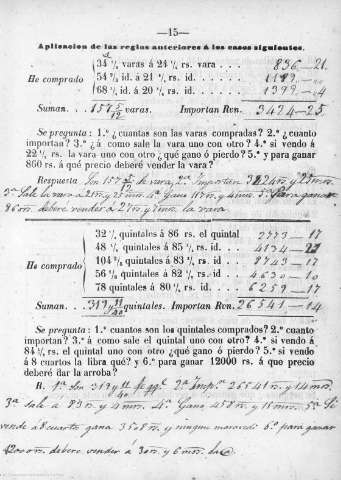 —15—
Aplicacion de las reglas anteriores á los casos siguientes.
He comprado
varas á 24 rs. vara . . . 836—21
id. á 21 rs. id. . . . .
68 id. á 20 rs. id. . . . . 1399—
Suman. . . 157 5/12 varas. Importan Rvn. 3424—25
Se pregunta: 1.º ¿cuantas son las varas compradas? 2.º ¿cuanto
importan? 3.º ¿á como sale la vara uno con otro? 4.º si vendo á
22 rs. la vara uno con otro ¿qué gano ó pierdo? 5.º y para ganar
860 rs. á qué precio deberé vender la vara?
Respuesta Son 157 5/12 de vara, 2.ª Importan
3.ª Sale la vara á 5.ª Para ganar
860 rs. deberé vender á la vara
He comprado
32 quintales á 86 rs. el quintal 2773—17
48 quintales á 85 rs. id. 4134—22
104 quintales á 83 rs. id. 8743—17
56 quintales á 82 rs. id. 4630—10
78 quintales á 80 rs. id. 6259—17
Suman. . . 319 11/40 quintales. Importan Rvn. 26541—14
Se pregunta: 1.º cuantos son los quintales comprados? 2.º cuanto
importan? 3.º á como sale el quintal uno con otro? 4.º si vendo á
84 rs. el quintal uno con otro ¿qué gano ó pierdo? 5.º si vendo
á 8 cuartos la libra qué? y 6.º para ganar 12000 rs. á que precio
deberé dar la arroba?
R. 1.ª Son 319 11/40 2.ª Imp.n 26541 rs. y 14 mrs.
3.ª sale á 83 rs. y 4 mrs. 4.ª Gano 458 rs. y 11 mrs. 5.ª Si
vende á 8 cuartos gana 3508 rs. y ningun maravedi 6.ª para ganar
12000 rs. deberé vender á 30 rs. y 6 mrs. la @